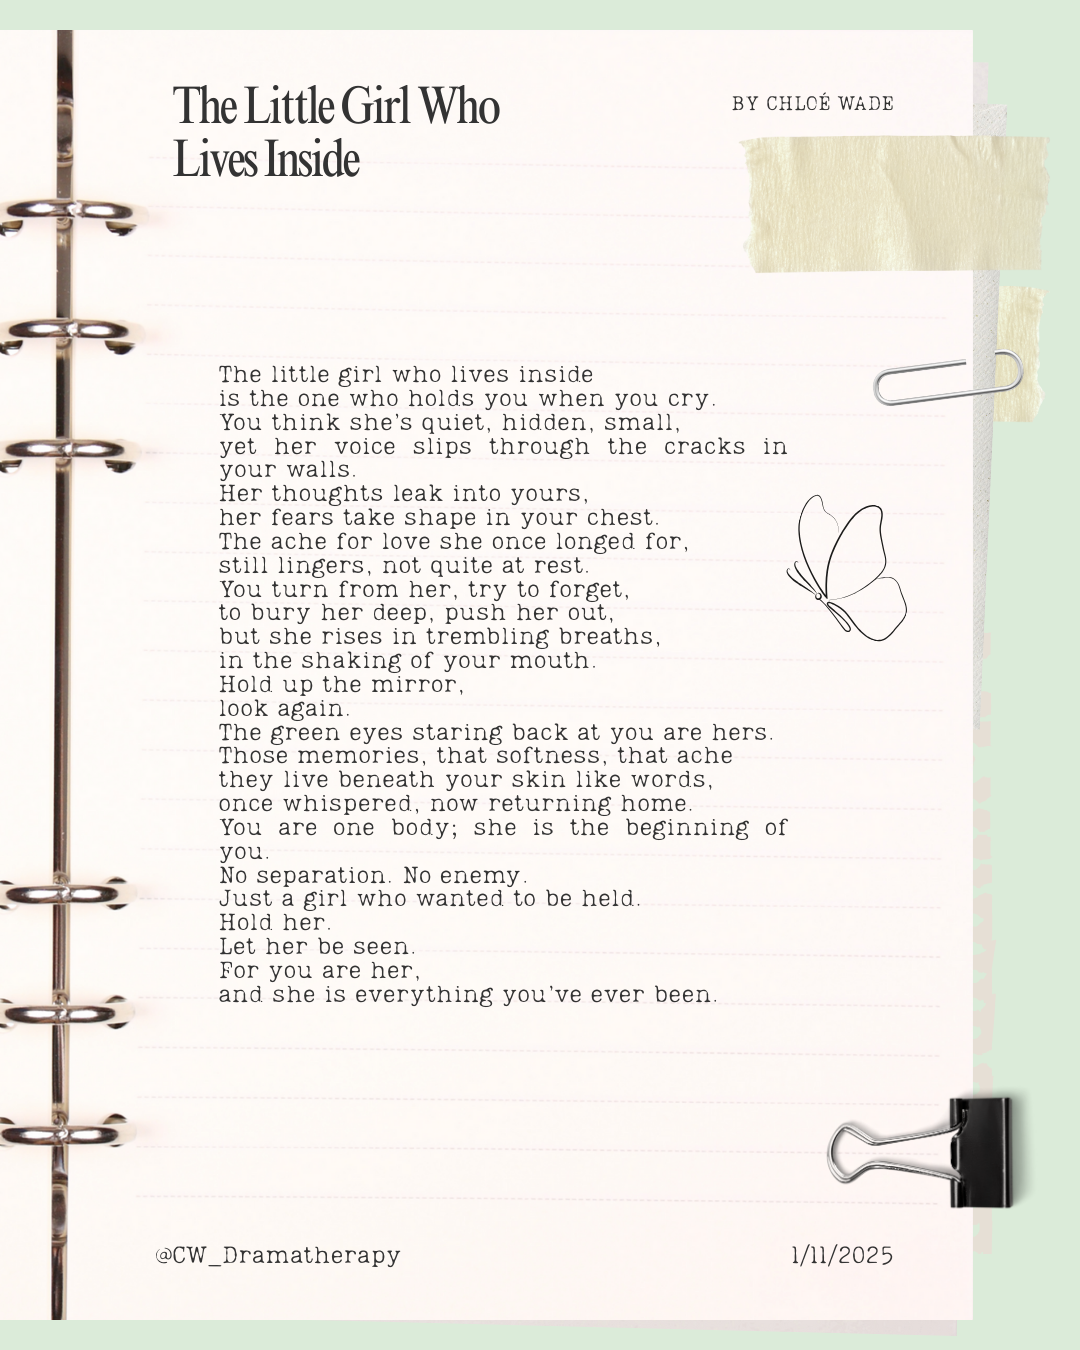 The Little Girl Who
Lives Inside
BY CHLOÉ WADE
The little girl who lives inside
is the one who holds you when you cry.
You think she’s quiet, hidden, small,
yet her voice slips through the cracks in
your walls.
Her thoughts leak into yours,
her fears take shape in your chest.
The ache for love she once longed for,
still lingers, not quite at rest.
You turn from her, try to forget,
to bury her deep, push her out,
but she rises in trembling breaths,
in the shaking of your mouth.
Hold up the mirror,
look again.
The green eyes staring back at you are hers.
Those memories, that softness, that ache
they live beneath your skin like words,
once whispered, now returning home.
You are one body; she is the beginning of
you.
No separation. No enemy.
Just a girl who wanted to be held.
Hold her.
Let her be seen.
For you are her,
and she is everything you’ve ever been.
@CW_Dramatherapy
1/11/2025